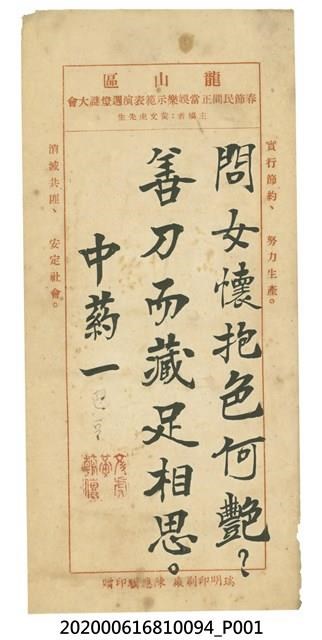 龍山區
春節民間正當娛樂示範表演週燈謎大會
主編者:黃文虎先生
實行節約、 努力生產。
問女懷抱色何艷?
善刀而藏足相思。
中葯一 巴豆
消滅共匪、 安定社會。
瑞明印刷廠 陳應印贈
202000616810094_P001